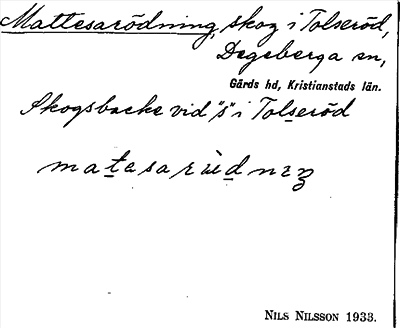 Mattesarödning, skog i Tolseröd,
Degeberga sn,
Gärds hd, Kristianstads län.
Skogsbacke vid "s" i Tolseröd
matesarùdnıŋ
NILS NILSSON 1933.